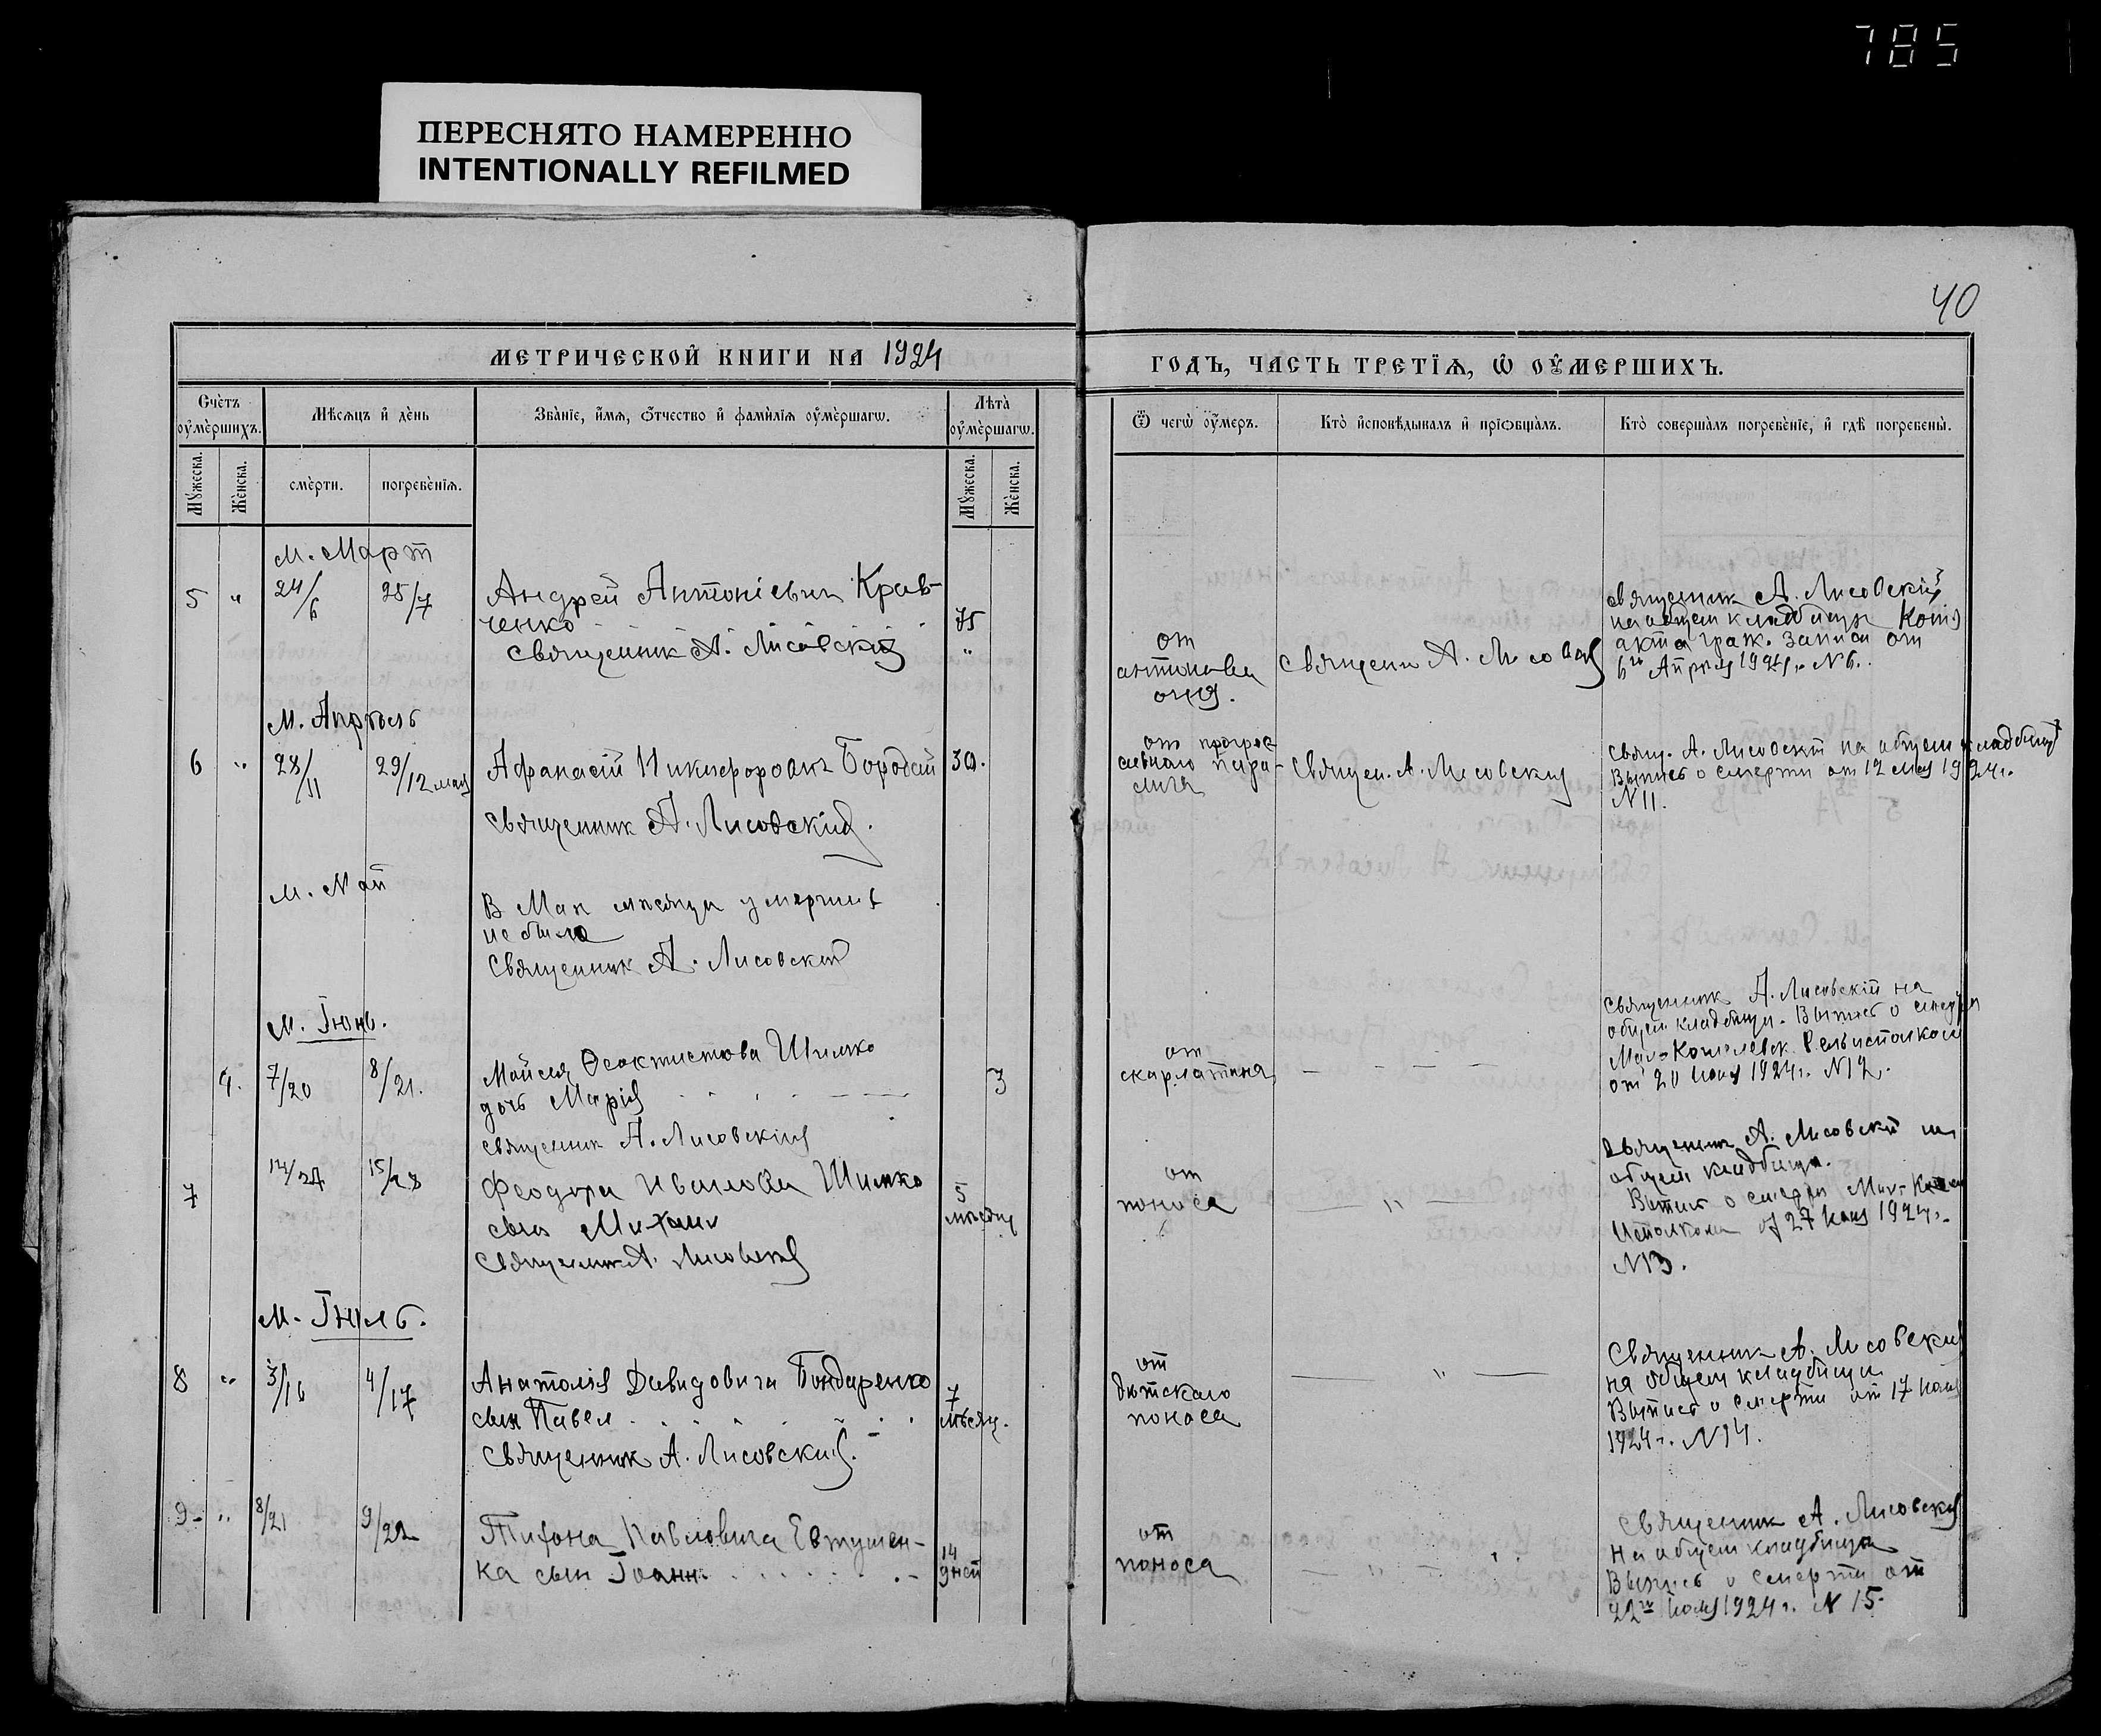 785
ПЕРЕСНЯТО НАМЕРЕННО
INTENTIONALLY REFILMED
40
МЕТРИЧЕСКОЙ КНИГИ НА 1924
ГОДЪ, ЧАСТЬ ТРЕТІѦ, Ѡ ОУМЕРШИХЪ.
Счётъ оумершихъ.
Мѣсѧцъ и день
Званіе, имѧ, отчество и фамиліѧ оумершагѡ.
Лѣта оумершагѡ.
Ѿ чегѡ оумеръ.
Кто исповѣдывалъ и пріобщалъ.
Кто совершалъ погребеніе, и гдѣ погребены.
Мужеска.
Женска.
смерти.
погребеніѧ.
Мужеска.
Женска.
м. Март
5 " 24/6 25/7
Андрей Антоніевич Крав-
ченко
75
"
Священник А. Лисовскій
от
антонова
огня.
Священ А. Лисовск
Священник А. Лисовскій
на общем кладбище
акта граж. записи от
6го Апреля 1924 г. № 6.
м. Апрѣль
6 " 28/11 29/12 мая
Афанасій Никифорович Бородай
30.
Священник А. Лисовскій.
от прогрес
сивного пара-
лича
Священ. А. Лисовскій
Свящ. А. Лисовскій на общем кладбище
Выпись о смерти от 12 мая 1924 г.
№ 11.
м. Май
В Мае месяце умерших
не было
Священник А. Лисовский
м. Іюнь.
4. 7/20 8/21.
Мойсея Феоктистова Шимко
дочь Марія
3
Священник А. Лисовскій
от
скарлатина
Священник А. Лисовскій на
общем кладбище. Выпись о смерти
от 20 июня 1924 г. № 12.
7 14/27 15/28
Феодора Иванова Шимко
сын Михаил
5
месяц
Священник А. Лисовский
от
поноса
"
Священник А. Лисовский на
общем кладбище.
Выпись о смерти
Исполкома от 27 июня 1924 г.
№ 13.
м. Іюль.
8 " 3/16 4/17
Анатолія Давидовича Бондаренко
сын Павел
7
мѣсяц.
Священник А. Лисовский.
от
дѣтскаго
поноса
"
Священник А. Лисовский
на общем кладбище
Выпись о смерти от 17 июля
1924 г. № 14.
9 - " 8/21 9/22
Тихона Павловича Евтушен-
ка сын Іоанн
14
дней
от
поноса
Священник А. Лисовский
на общем кладбище
Выпись о смерти от
22го июля 1924 г. № 15.